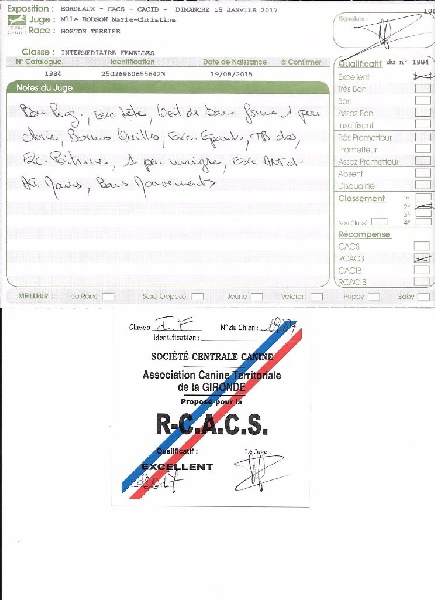 Exposition : BORDEAUX - CACS - CACIB - DIMANCHE 15 JANVIER 2017
Juge : Mlle Marie-Christine
Race : BOSTON TERRIER
Classe : INTERMEDIAIRE FEMELLES
N° Catalogue Identification Date de Naissance à Confirmer
1984 19/08/2015
Notes du Juge
Bon Exc tête, Oeil de bonne forme 1 peu
claire, Bonnes Oreilles, Exc. TB dos,
Exc. Poitrine, 1 peu maigre, Exc
Bons Mouvements
Qualificatif du n° 1984
Excellent
Très Bon
Bon
Assez Bon
Insuffisant
Très Prometteur
Prometteur
Assez Prometteur
Absent
Disqualifié
Classement 1°
2°
3°
Non Classé 4°
Récompense
CACS
RCACS
CACIB
RCACIB
MEILLEUR : de Race Sexe Opposé Jeune Vétéran Puppy Baby
Classe I.F N° du Chien :
Identification :
SOCIÉTÉ CENTRALE CANINE
Association Canine Territoriale
de la GIRONDE
Proposé pour la
R-C.A.C.S.
Qualificatif : Le Juge
EXCELLENT
2017